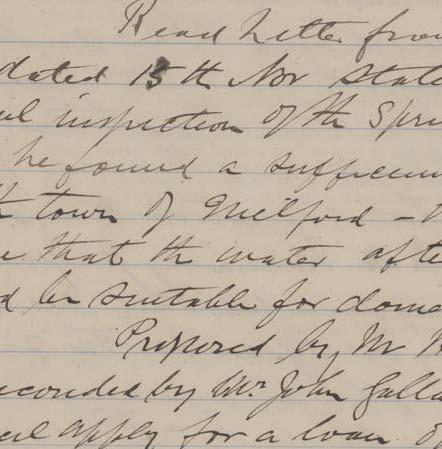 Read Letter from
dated 15th Nov state
ul inspection of th Spri
he found a sufficien
th town of Milford -
e that the water afte
d be suitable for dome
Proposed by Mr
seconded by Mr. John Galla
cil apply for a loan of